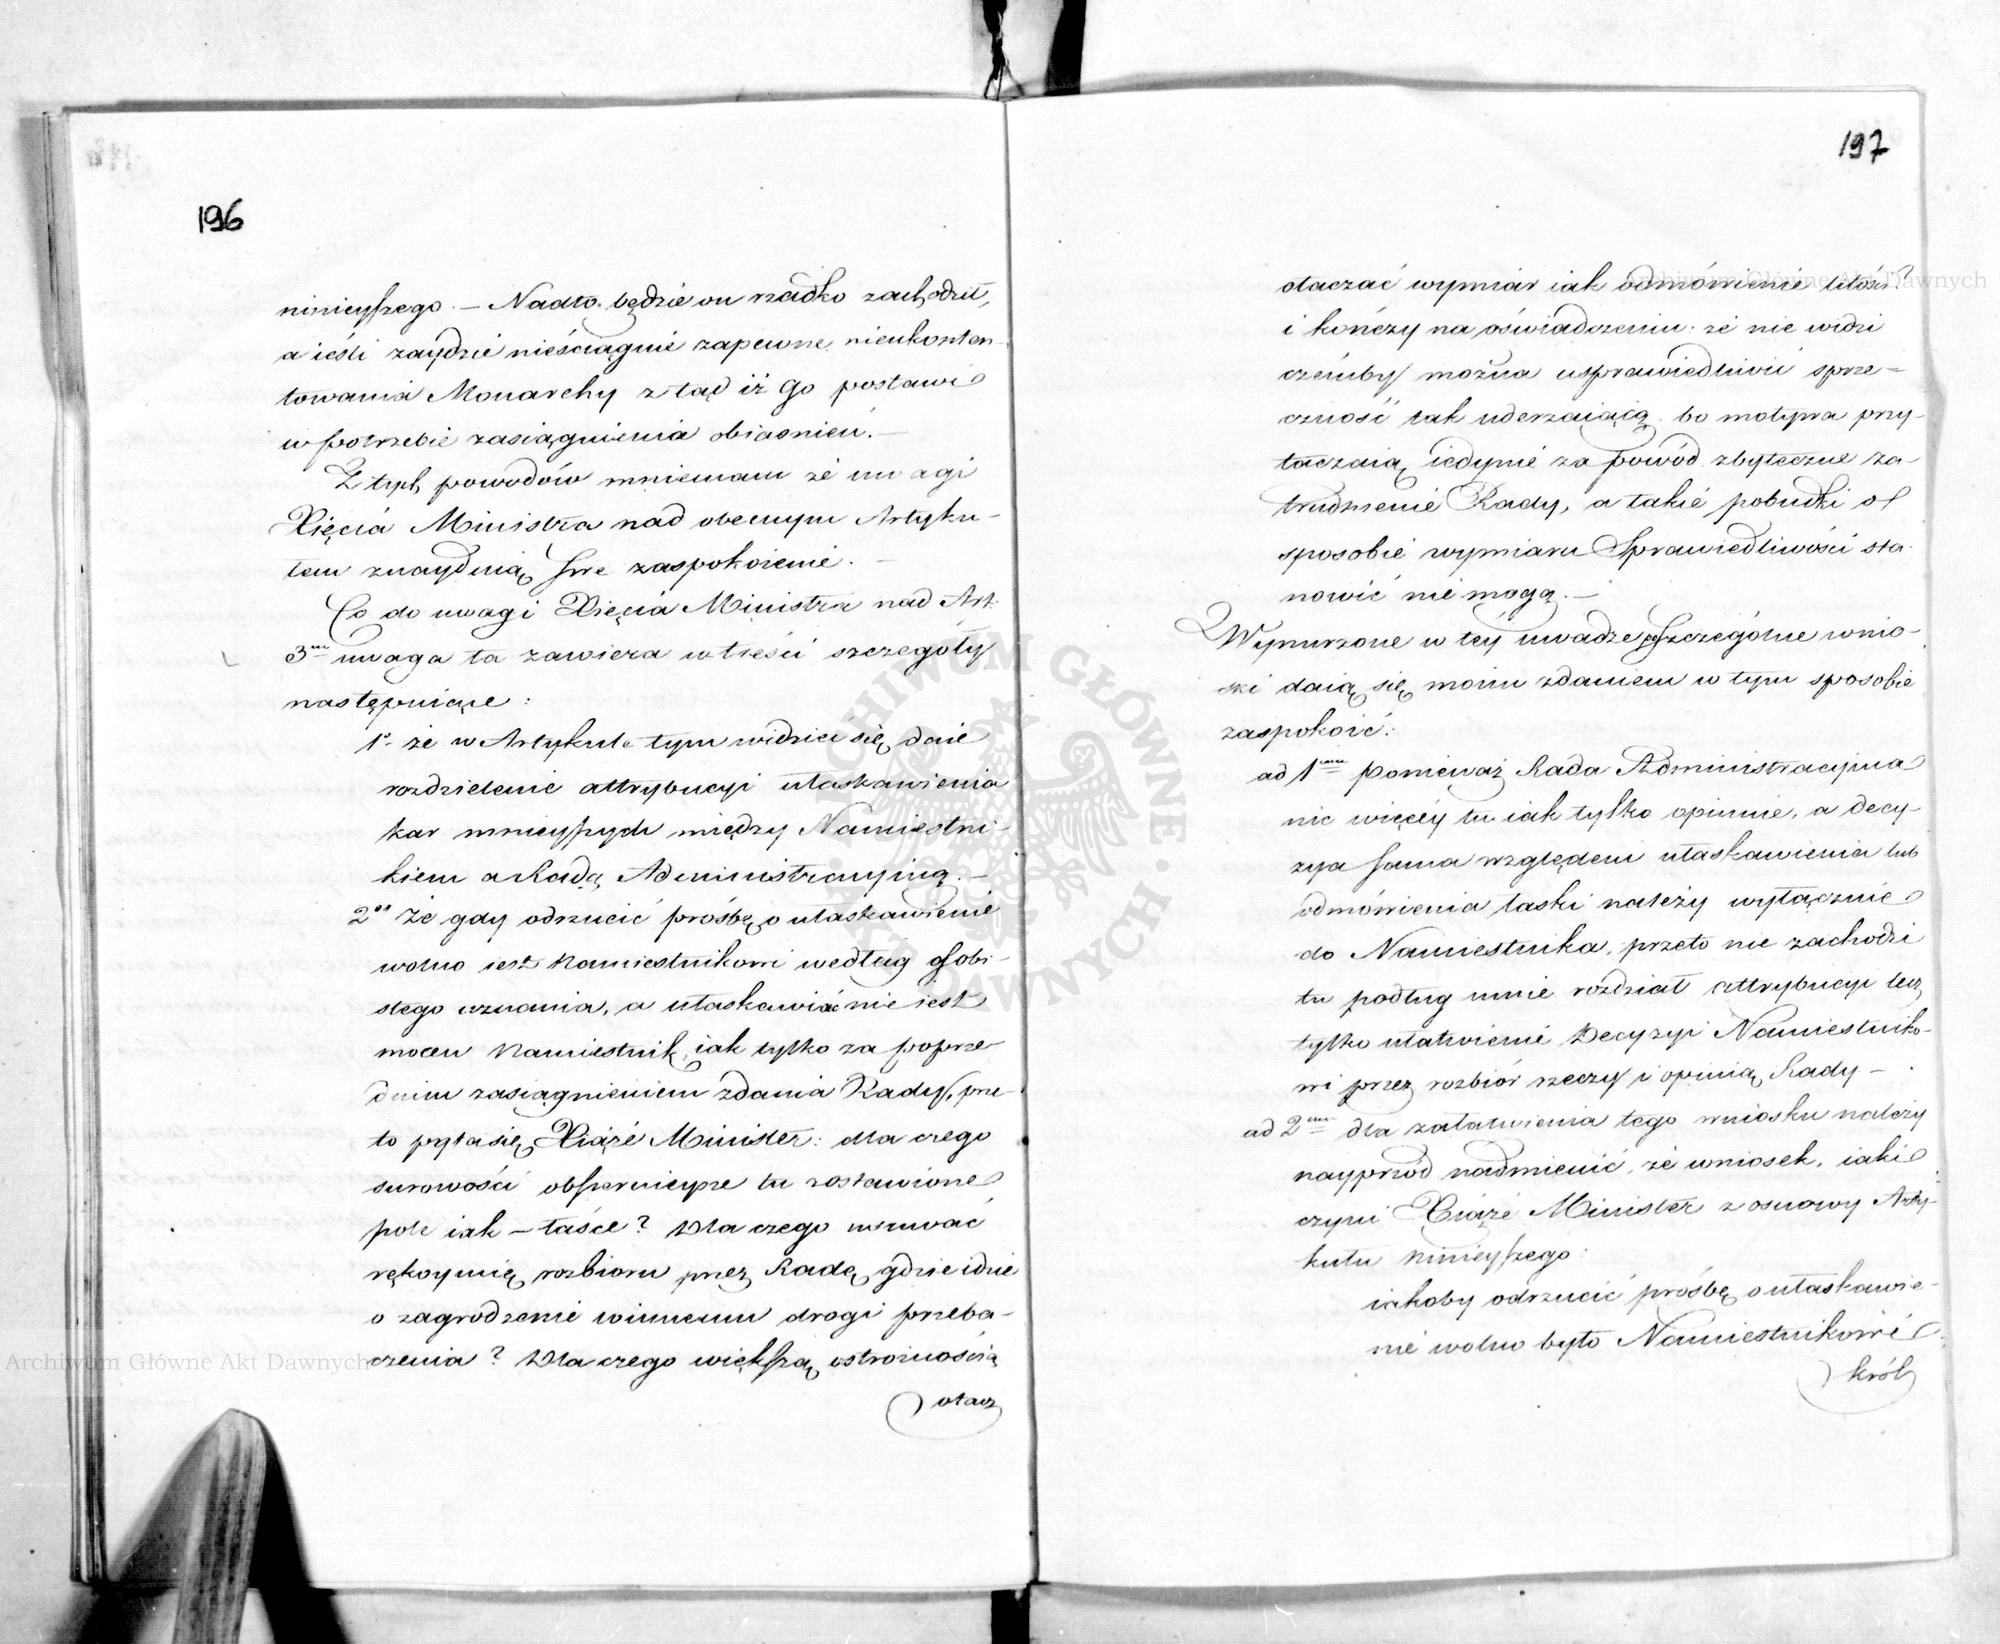 196
ninieyszego. — Nadto będzie on rzadko zachodził,
a ieśli zaydzie nieściągnie zapewne nieukonten-
towania Monarchy z tąd iż Go postawi
w potrzebie zasiągnienia obiasnień. —
Z tych powodów mniemam że uwagi
Xięcia Ministra nad obecnym Artyku-
łem znaydują swe zaspokoienie. —
Co do uwagi Xięcia Ministra nad Art.
3m uwaga ta zawiera w treści szczegóły
następuiące:
1o że w Artykule tym widzieć się daie
rozdzielenie attrybucyi ułaskawienia
kar mnieyszych między Namiestni-
kiem a Radą Administracyiną. —
2o Że gdy odrzucić prośbę o ułaskawienie
wolno iest Namiestnikowi według osobi-
stego uznania, a ułaskawiać nie iest
mocen Namiestnik iak tylko za poprze-
dnim zasiągnieniem zdania Rady, prze-
to pyta się Xiąże Minister: dla czego
surowości obszernieysze tu zostawione
pole iak — łasce? Dla czego usuwać
rękoymię rozbioru przez Radę gdzie idzie
o zagrodzenie winnemu drogi przeba-
czenia? Dla czego większą ostrożnością
otacz
197
otaczać wymiar iak odmówienie litości?
i kończy na oświadczeniu: że nie widzi
czémby można usprawiedliwić sprze=
czność tak uderzaiącą bo motywa przy-
taczaią iedynie za powód zbyteczne za-
trudnienie Rady, a takie pobudki o
sposobie wymiaru Sprawiedliwości sta-
nowić nie mogą. —
Wynurzone w tey uwadze szczególne wnio-
ski daią się moim zdaniem w tym sposobie
zaspokoić:
ad 1mum ponieważ Rada Administracyina
nic więcéy tu iak tylko opinie, a decy-
zya sama względem ułaskawienia lub
odmówienia łaski należy wyłącznie
do Namiestnika, przeto nie zachodzi
tu podług mnie rozdział attrybucyi lecz
tylko ułatwienie Decyzyi Namiestniko-
wi przez rozbiór rzeczy i opinią Rady —
ad 2dum dla załatwienia tego wniosku należy
nayprzód nadmienić, że wniosek, iaki
czyni Xiąże Minister z osnowy Arty-
kułu ninieyszego:
iakoby odrzucić prośbę o ułaskawie-
nie wolno było Namiestnikowi
król
Archiwum Główne Akt Dawnych
Archiwum Główne Akt Dawnych
ARCHIWUM GŁÓWNE AKT DAWNYCH